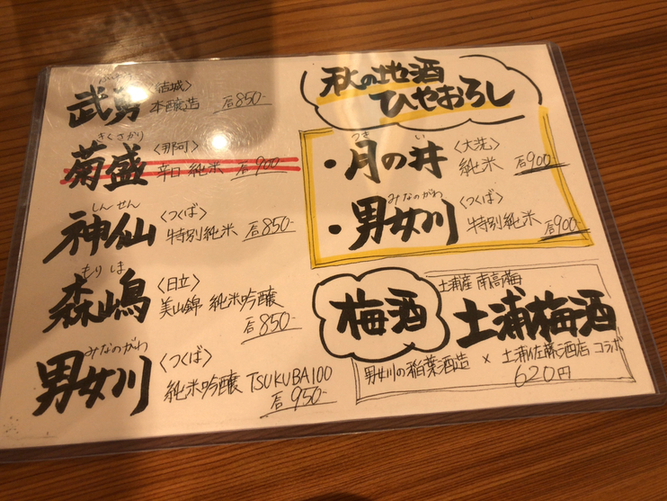 武勇 〈結城〉
本醸造 一合850-
きくさかり
菊盛 〈那珂〉
辛口 純米 一合900
しんせん
神仙 〈つくば〉
特別純米 一合850-
もりしま
森嶋 〈日立〉
美山錦 純米吟醸
一合850-
みなのがわ
男女川 〈つくば〉
純米吟醸 TSUKUBA100
一合950-
秋の地酒
ひやおろし
つき い
・月の井 〈大洗〉
純米 一合900-
みなのがわ
・男女川 〈つくば〉
特別純米 一合900-
梅酒
土浦産 南高梅
土浦梅酒
男女川の稲葉酒造 × 土浦佐藤酒店 コラボ
620円